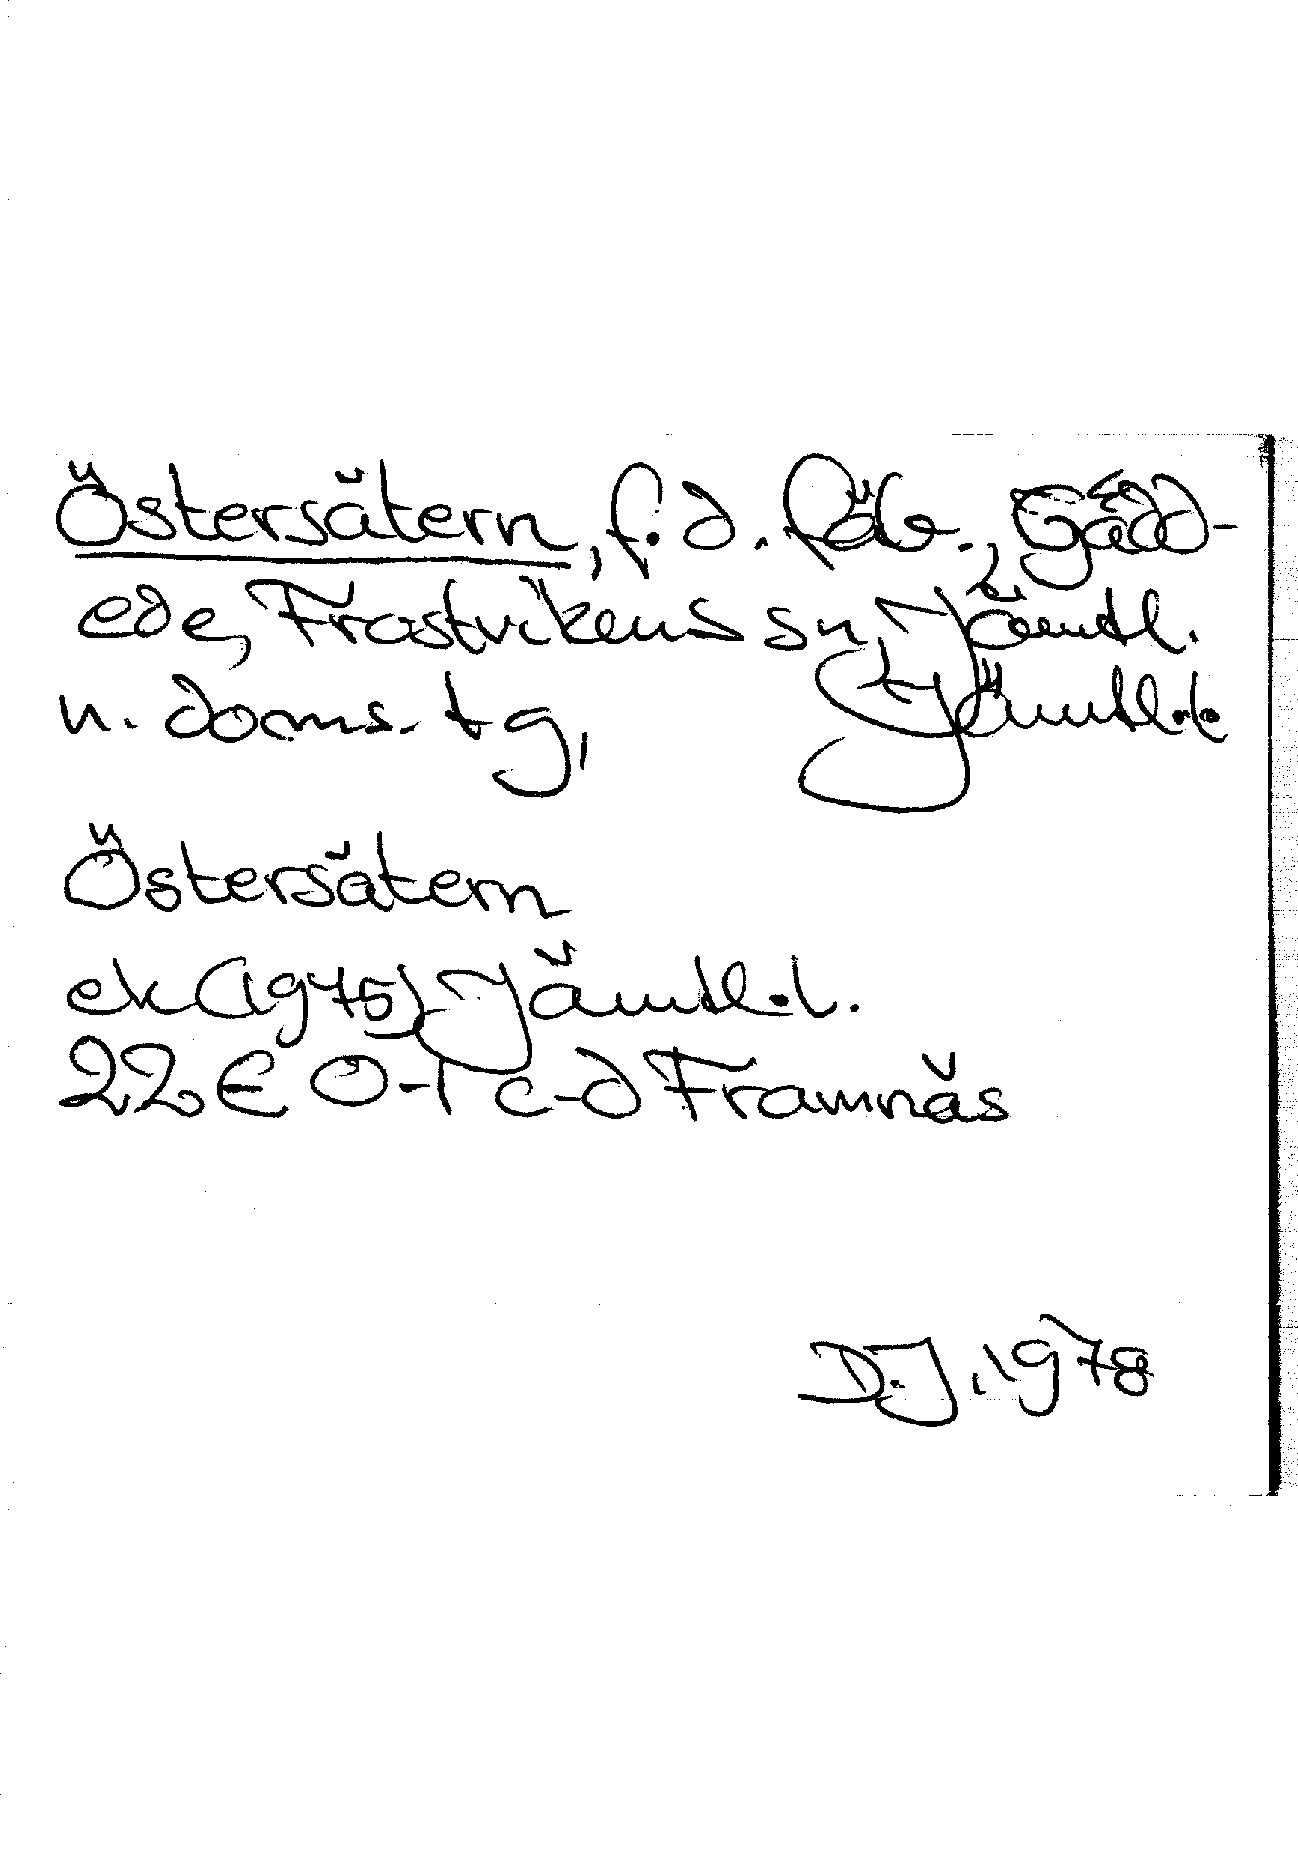 Östersätern, f.d. fäb., Gädd-
ede, Frostvikens sn, Jämtl.
n. doms. tg, Jämtl.l.
Östersätern
ek (1975) Jämtl.l.
22E 0-1 c-d Framnäs
D.J. 1978